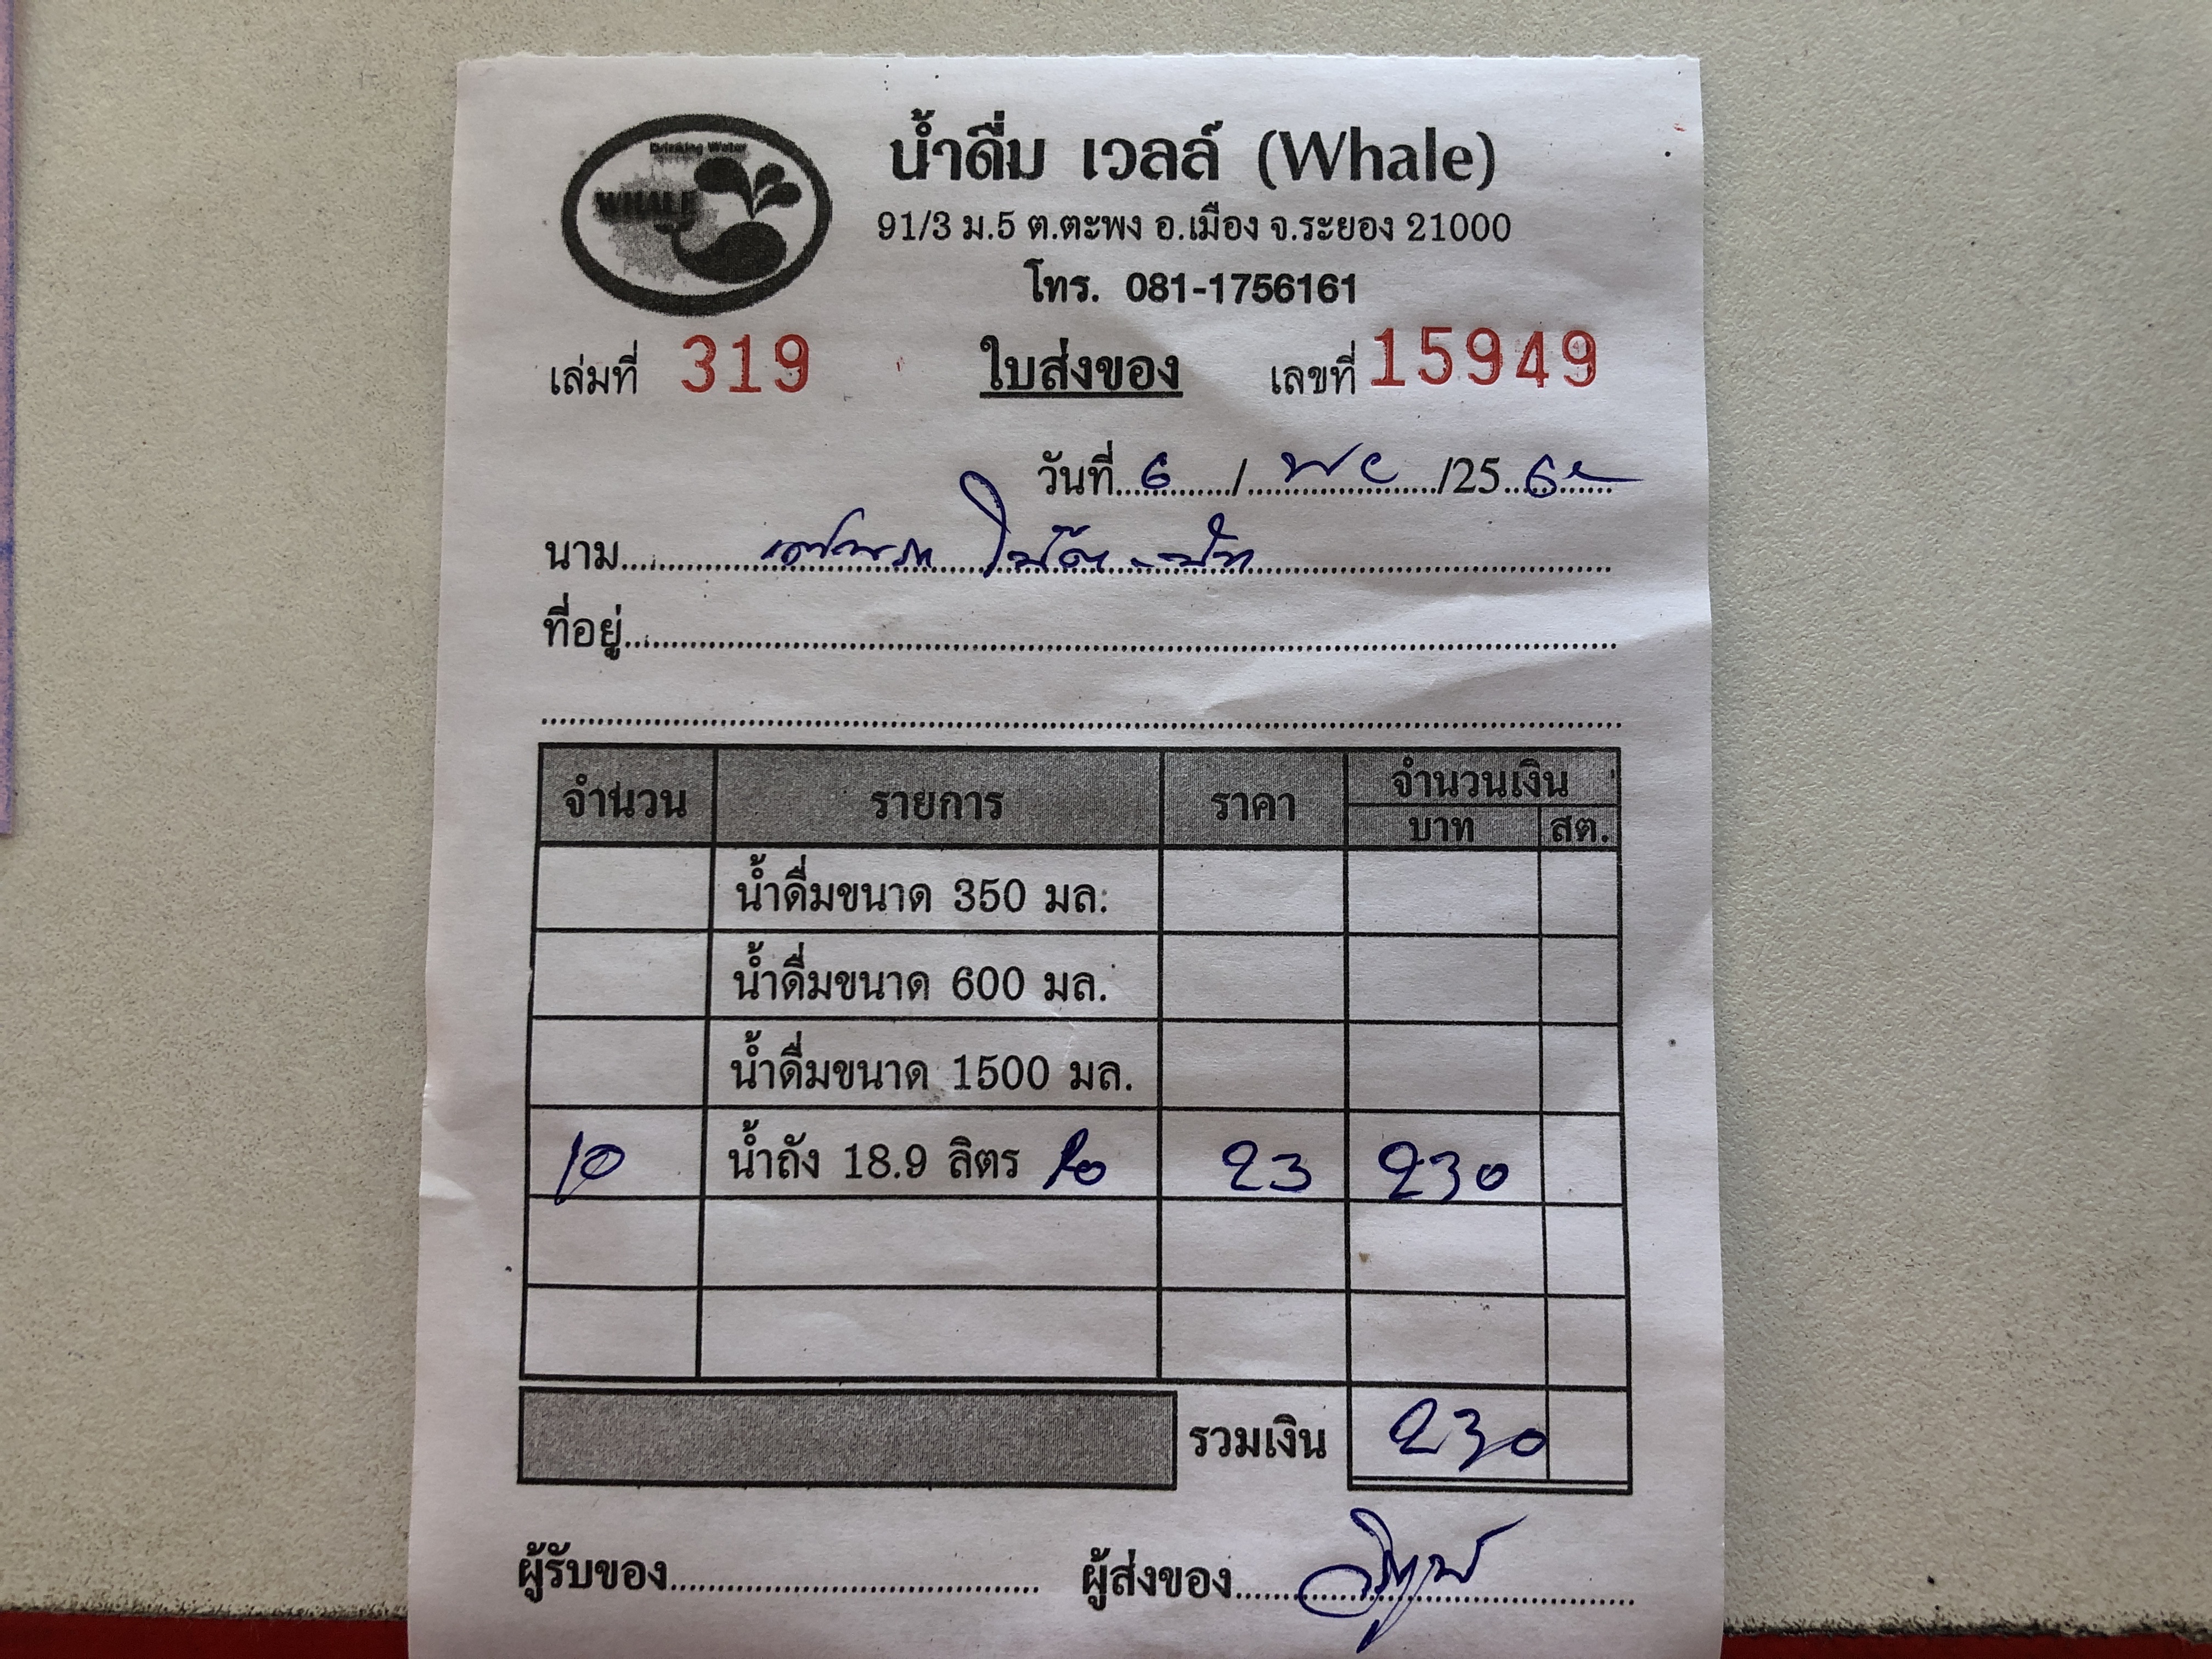 Drinking Water
WHALE
น้ำดื่ม เวลล์ (Whale)
91/3 ม.5 ต.ตะพง อ.เมือง จ.ระยอง 21000
โทร. 081-1756161
เล่มที่ 319 ใบส่งของ เลขที่ 15949
วันที่ 6 / พย /25
นาม
ที่อยู่
จำนวน รายการ ราคา จำนวนเงิน
บาท สต.
น้ำดื่มขนาด 350 มล.
น้ำดื่มขนาด 600 มล.
น้ำดื่มขนาด 1500 มล.
10 น้ำถัง 18.9 ลิตร 23 230
รวมเงิน 230
ผู้รับของ ผู้ส่งของ